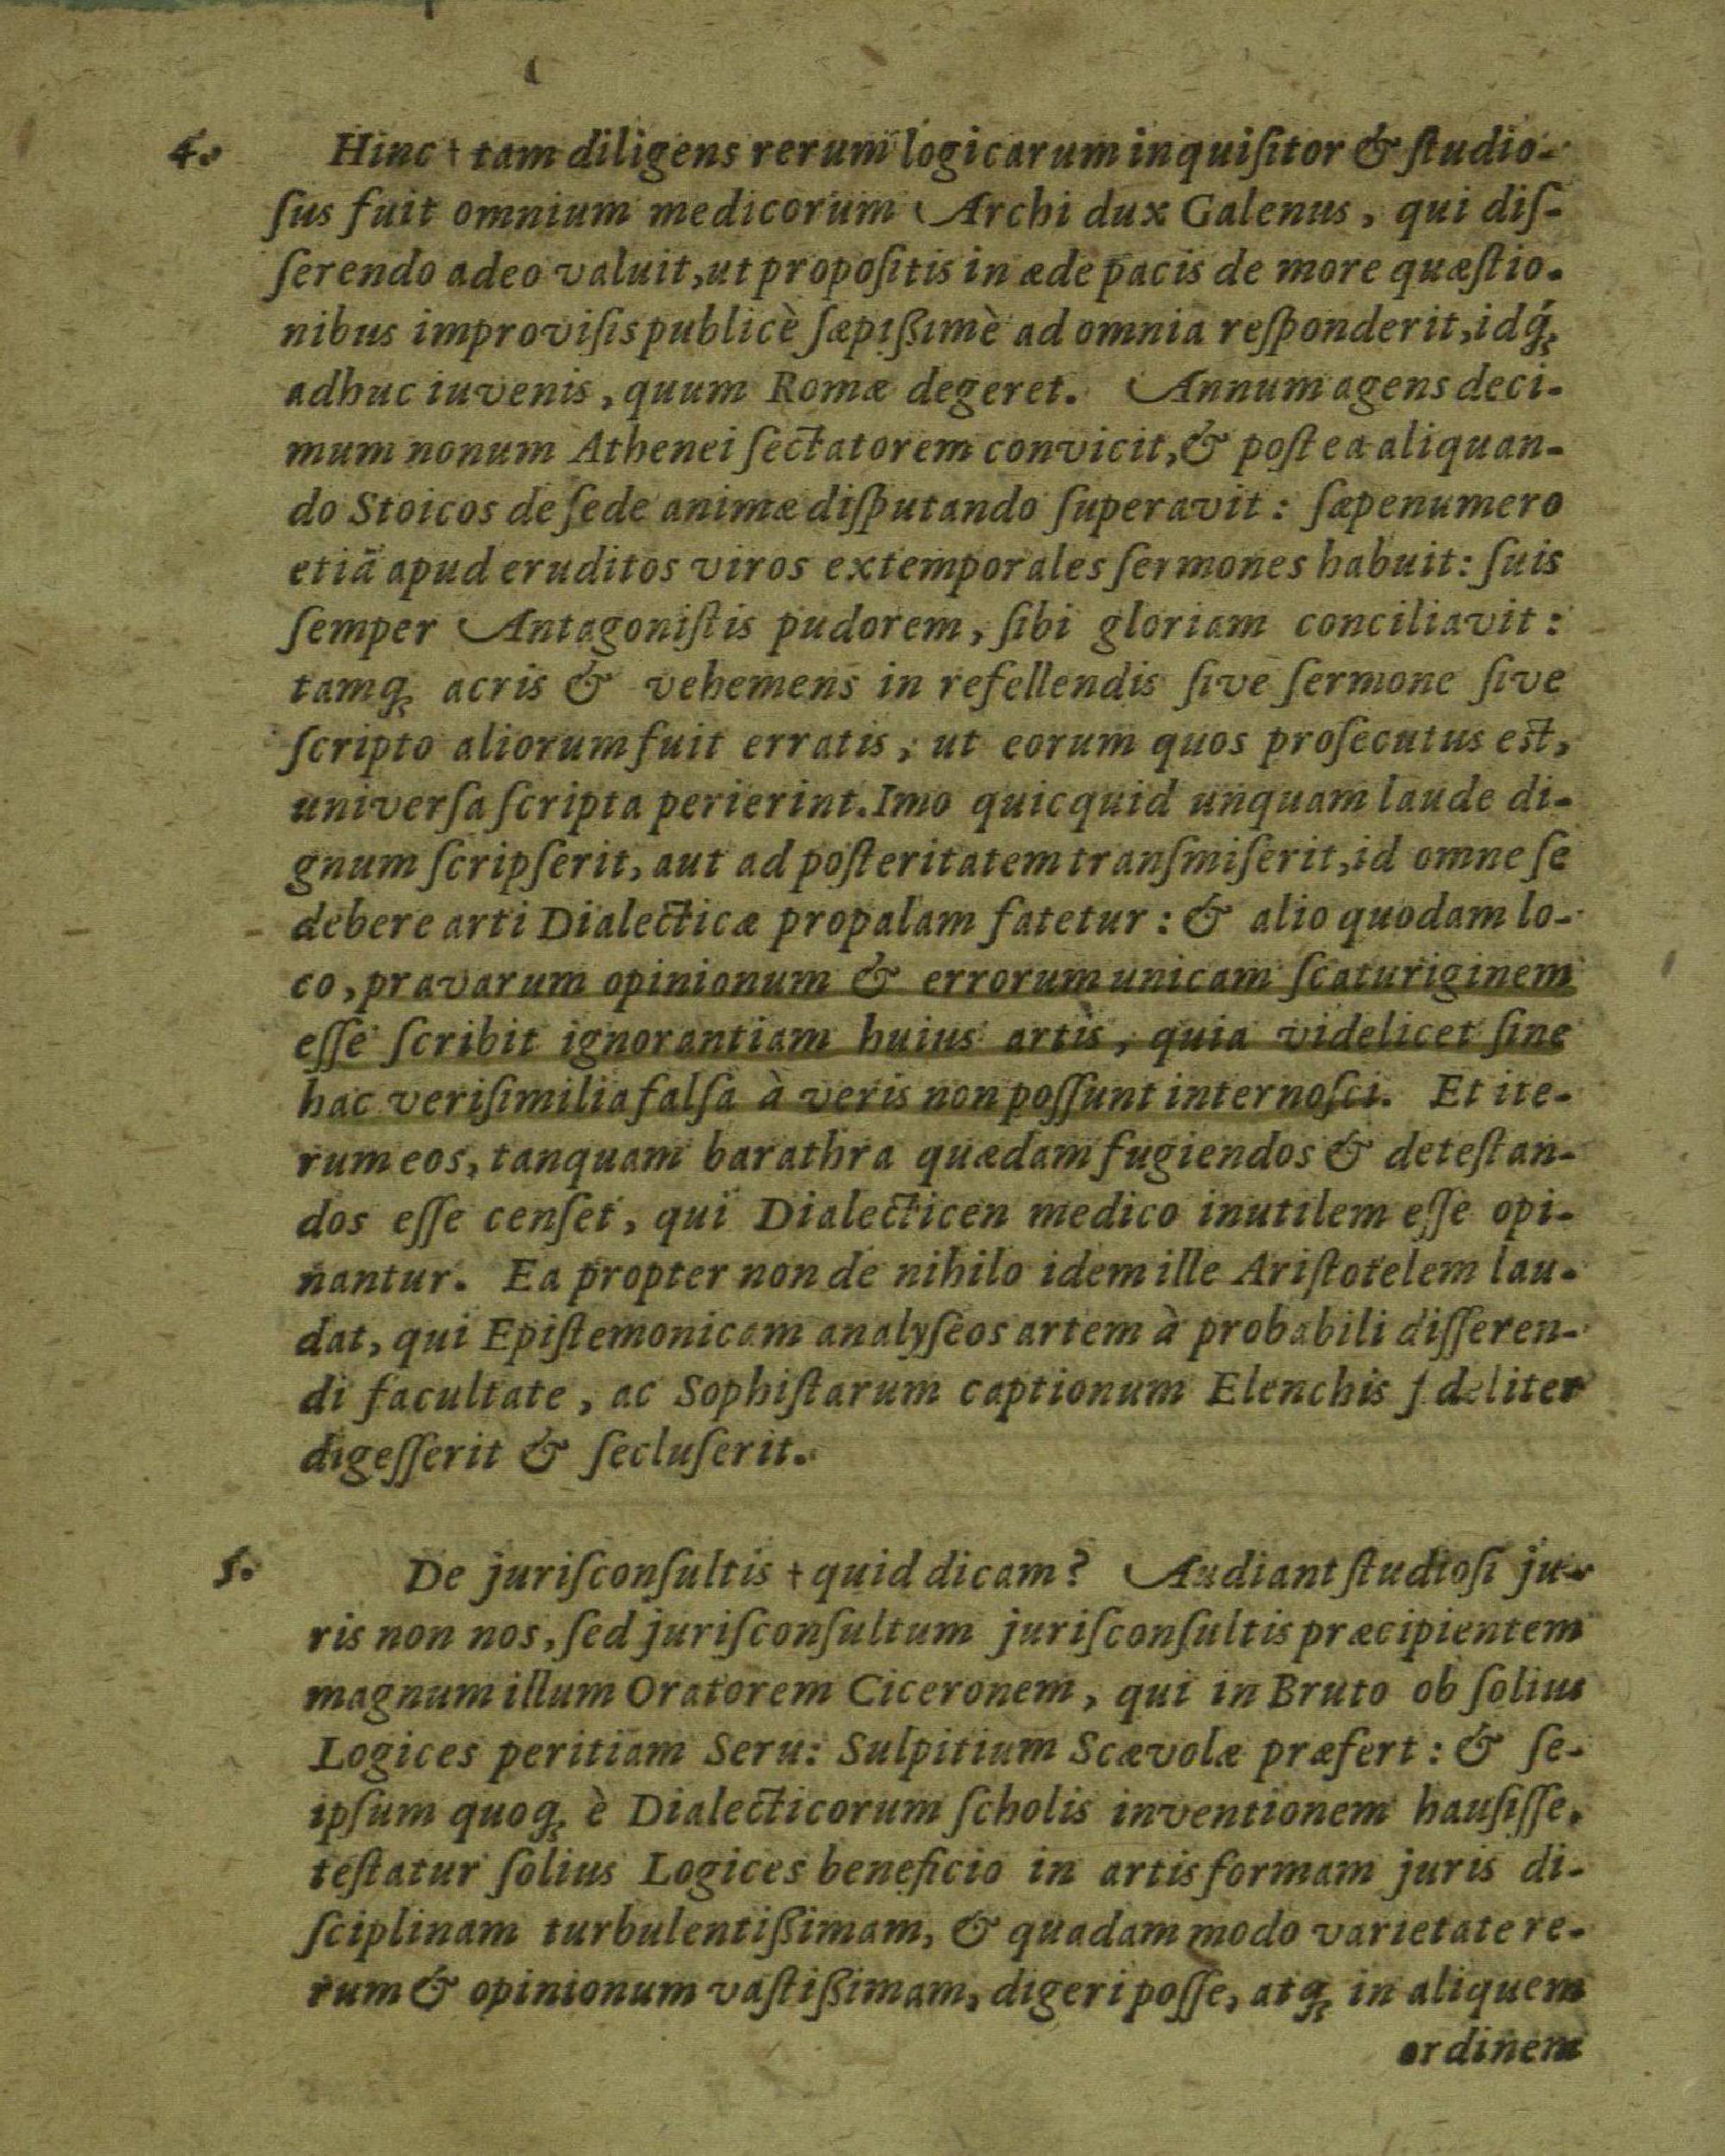 4. Hinc † tam diligens rerum logicarum inquiſitor & ſtudio-
ſus fuit omnium medicorum Archi dux Galenus, qui diſ-
ſerendo adeo valuit, ut propoſitis in æde pacis de more quæſtio-
nibus improviſis publicè ſæpißimè ad omnia reſponderit, idq́ꝫ
adhuc iuvenis, quum Romæ degeret. Annum agens deci-
mum nonum Athenei ſectatorem convicit, & poſtea aliquan-
do Stoicos de ſede animæ diſputando ſuperavit: ſæpenumero
etiã apud eruditos viros extemporales ſermones habuit: ſuis
ſemper Antagoniſtis pudorem, ſibi gloriam conciliavit:
tamqꝫ acris & vehemens in refellendis ſive ſermone ſive
ſcripto aliorum fuit erratis, ut eorum quos proſecutus eſt,
univerſa ſcripta perierint. Imo quicquid unquam laude di-
gnum ſcripſerit, aut ad poſteritatem tranſmiſerit, id omne ſe
debere arti Dialecticæ propalam fatetur: & alio quodam lo-
co, pravarum opinionum & errorum unicam ſcaturiginem
eſſe ſcribit ignorantiam huius artis, quia videlicet ſine
hac veriſimilia falſa à veris non poſſunt internoſci. Et ite-
rum eos, tanquam barathra quædam fugiendos & deteſtan-
dos eſſe cenſet, qui Dialecticen medico inutilem eſſe opi-
nantur. Ea propter non de nihilo idem ille Ariſtotelem lau-
dat, qui Epiſtemonicam analyſeos artem à probabili diſſeren-
di facultate, ac Sophiſtarum captionum Elenchis fideliter
digeſſerit & ſecluſerit.
5. De juriſconſultis † quid dicam? Audiant ſtudioſi ju-
ris non nos, ſed juriſconſultum juriſconſultis præcipientem
magnum illum Oratorem Ciceronem, qui in Bruto ob ſolius
Logices peritiam Seru: Sulpitium Scævolæ præfert: & ſe-
ipſum quoqꝫ è Dialecticorum ſcholis inventionem hauſiſſe,
teſtatur ſolius Logices beneficio in artis formam juris di-
ſciplinam turbulentißimam, & quadam modo varietate re-
rum & opinionum vaſtißimam, digeri poſſe, atqꝫ in aliquem
ordinem